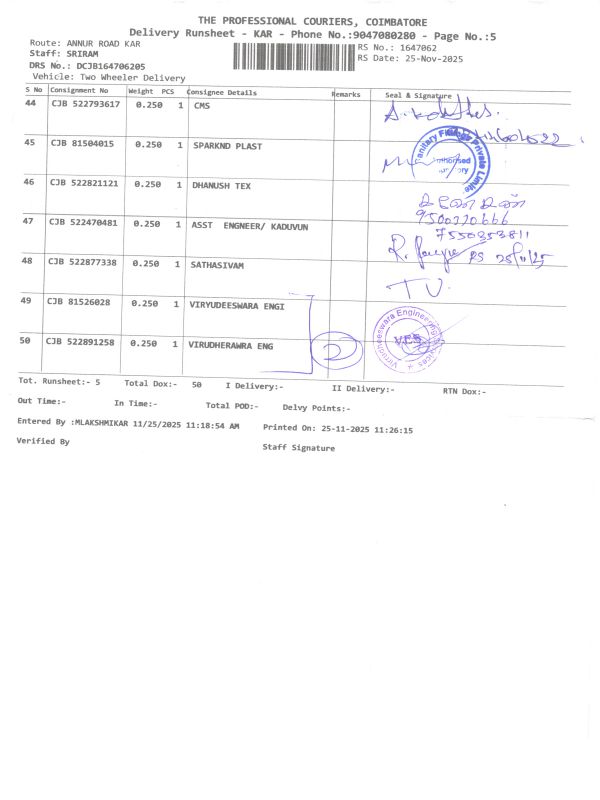 THE PROFESSIONAL COURIERS, COIMBATORE
Delivery Runsheet - KAR - Phone No.:9047080280 - Page No.:5
Route: ANNUR ROAD KAR
RS No.: 1647062
Staff: SRIRAM
RS Date: 25-Nov-2025
DRS No.: DCJB164706205
Vehicle: Two Wheeler Delivery
S No Consignment No Weight PCS Consignee Details Remarks Seal & Signature
44 CJB 522793617 0.250 1 CMS
45 CJB 81504015 0.250 1 SPARKND PLAST
Private Limite
46 CJB 522821121 0.250 1 DHANUSH TEX
9500220666
47 CJB 522470481 0.250 1 ASST ENGNEER/ KADUVUN
7550353811
RS 25/11/25
48 CJB 522877338 0.250 1 SATHASIVAM
TV.
49 CJB 81526028 0.250 1 VIRYUDEESWARA ENGI
Virutheeswara Engineering Services
VES
50 CJB 522891258 0.250 1 VIRUDHERAWRA ENG
2
Tot. Runsheet:- 5 Total Dox:- 50 I Delivery:- II Delivery:- RTN Dox:-
Out Time:- In Time:- Total POD:- Delvy Points:-
Entered By :MLAKSHMIKAR 11/25/2025 11:18:54 AM Printed On: 25-11-2025 11:26:15
Verified By Staff Signature